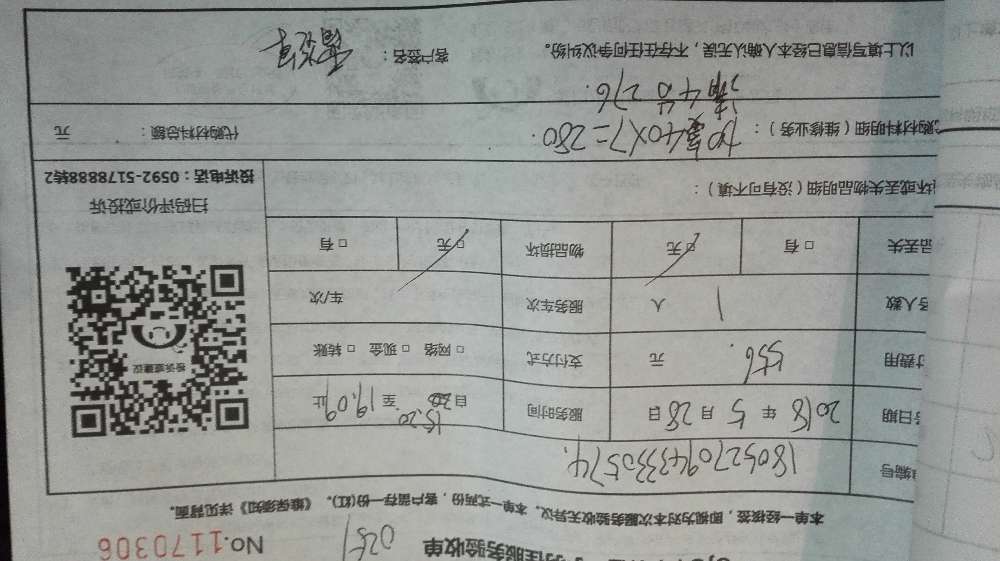 住服务验收单 0251 No.1170306
本单一经核签，即视为对本次服务验收无异议。本单一式两份，客户留存一份(红)。《维保须知》详见背面。
编号 18052709433330574
日期 2018 年 5 月 28 日 服务时间 自 15.20 至 19.09 止
付费用 556 元 支付方式 □ 网络 □ 现金 □ 转账
务人数 1 人 服务车次 车/次
品丢失 □ 有 □ 无 物品损坏 □ 无 □ 有
投诉或建议
扫码评价或投诉
投诉电话：0592-5178888转2
坏或丢失物品明细（没有可不填）：
购材料明细（维修业务）： 加 40X7=280 代购材料总额： 元
清 4 276
以上填写信息已经本人确认无误，不存在任何争议纠纷。 客户签名：